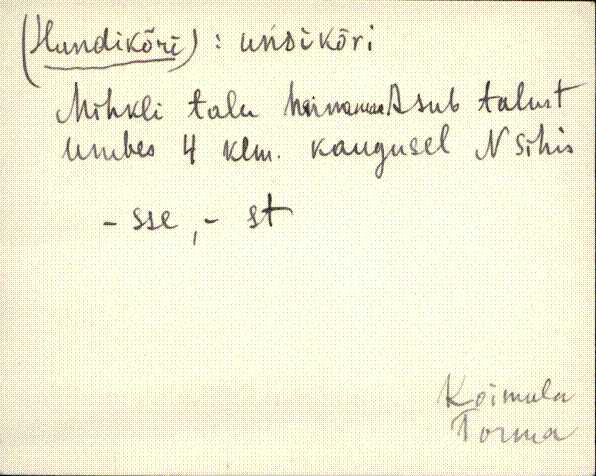 (Hundikõri) : uńdikõri
Mihkli talu heinamaa Asub talust
umbes 4 klm. kaugusel N sihis
- sse, - st
Koimula
Torma